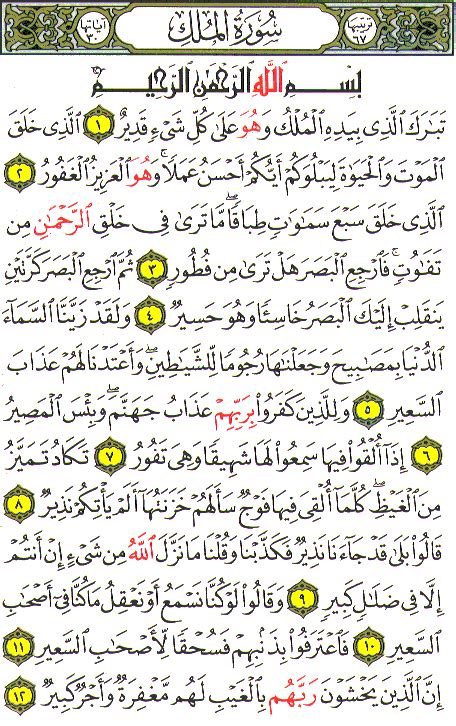 ترتيبها ٦٧ سُورَةُ الْمُلْكِ آياتها ٣٠
بِسْمِ اللَّهِ الرَّحْمَٰنِ الرَّحِيمِ
تَبَارَكَ الَّذِي بِيَدِهِ الْمُلْكُ وَهُوَ عَلَىٰ كُلِّ شَيْءٍ قَدِيرٌ ١ الَّذِي خَلَقَ
الْمَوْتَ وَالْحَيَوٰةَ لِيَبْلُوَكُمْ أَيُّكُمْ أَحْسَنُ عَمَلًا ۚ وَهُوَ الْعَزِيزُ الْغَفُورُ ٢
الَّذِي خَلَقَ سَبْعَ سَمَٰوَٰتٍ طِبَاقًا ۖ مَّا تَرَىٰ فِي خَلْقِ الرَّحْمَٰنِ مِن
تَفَٰوُتٍ ۖ فَارْجِعِ الْبَصَرَ هَلْ تَرَىٰ مِن فُطُورٍ ٣ ثُمَّ ارْجِعِ الْبَصَرَ كَرَّتَيْنِ
يَنقَلِبْ إِلَيْكَ الْبَصَرُ خَاسِئًا وَهُوَ حَسِيرٌ ٤ وَلَقَدْ زَيَّنَّا السَّمَآءَ
الدُّنْيَا بِمَصَٰبِيحَ وَجَعَلْنَٰهَا رُجُومًا لِّلشَّيَٰطِينِ ۖ وَأَعْتَدْنَا لَهُمْ عَذَابَ
السَّعِيرِ ٥ وَلِلَّذِينَ كَفَرُوا۟ بِرَبِّهِمْ عَذَابُ جَهَنَّمَ ۖ وَبِئْسَ الْمَصِيرُ
٦ إِذَآ أُلْقُوا۟ فِيهَا سَمِعُوا۟ لَهَا شَهِيقًا وَهِيَ تَفُورُ ٧ تَكَادُ تَمَيَّزُ
مِنَ الْغَيْظِ ۖ كُلَّمَآ أُلْقِيَ فِيهَا فَوْجٌ سَأَلَهُمْ خَزَنَتُهَآ أَلَمْ يَأْتِكُمْ نَذِيرٌ ٨
قَالُوا۟ بَلَىٰ قَدْ جَآءَنَا نَذِيرٌ فَكَذَّبْنَا وَقُلْنَا مَا نَزَّلَ اللَّهُ مِن شَيْءٍ إِنْ أَنتُمْ
إِلَّا فِي ضَلَٰلٍ كَبِيرٍ ٩ وَقَالُوا۟ لَوْ كُنَّا نَسْمَعُ أَوْ نَعْقِلُ مَا كُنَّا فِيٓ أَصْحَٰبِ
السَّعِيرِ ١٠ فَاعْتَرَفُوا۟ بِذَنۢبِهِمْ فَسُحْقًا لِّأَصْحَٰبِ السَّعِيرِ ١١
إِنَّ الَّذِينَ يَخْشَوْنَ رَبَّهُم بِالْغَيْبِ لَهُم مَّغْفِرَةٌ وَأَجْرٌ كَبِيرٌ ١٢